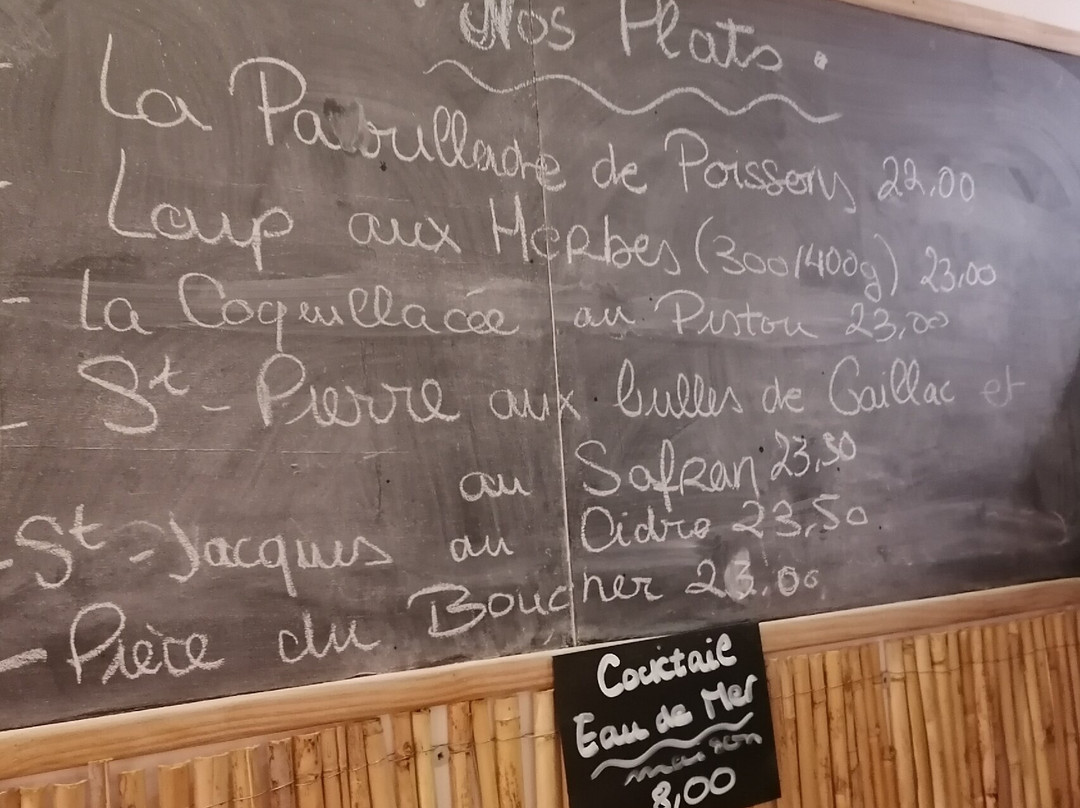 Nos Plats.
La Parrillade de Poissons 22,00
Loup aux Herbes (300/400g) 23,00
- La Coquillacée au Pistou 23,00
- St-Pierre aux bulles de Gaillac et
au Safran 23,50
- St-Jacques au Cidre 23,50
- Pièce du Boucher 23,00
Cocktail
Eau de Mer
maison
8,00